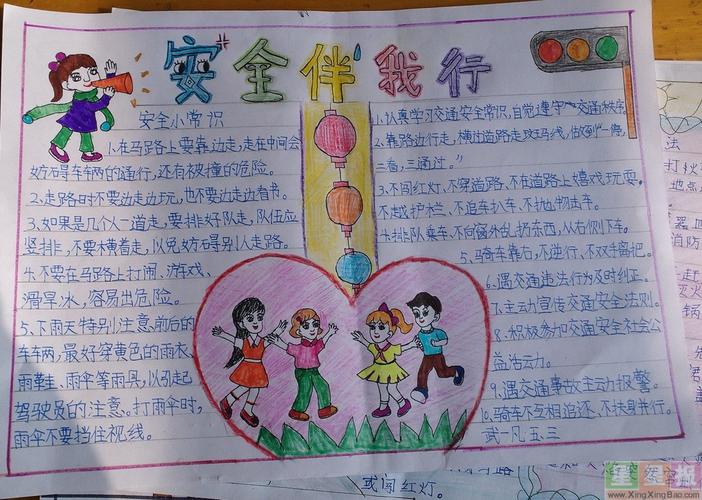 安全伴我行
安全小常识
1.在马路上要靠边走,走在中间会
妨碍车辆的通行,还有被撞的危险。
2、走路时不要边走边玩,也不要边走边看书。
3、如果是几个人一道走,要排好队走,队伍应
竖排,不要横着走,以免妨碍别人走路。
4.不要在马路上打闹、游戏、
滑旱冰,容易出危险。
5、下雨天特别注意,前后的
车车两,最好穿黄色的雨衣、
雨鞋、雨伞等雨具,以引起
驾驶员的注意。打雨伞时,
雨伞不要挡住视线。
1、认真学习交通安全常识,自觉遵守"交通秩序
2.靠路边行走,横过道路走斑马线,做到"一停,
二看,三通过。"
3、不闯红灯、不穿道路、不在道路上嬉戏玩耍。
不越护栏、不追车扒车、不抛物击车。
4.排队乘车、不向窗外乱扔东西,从右侧下车。
5、骑车靠右,不逆行、不双手离把。
6、遇交通违法行为及时纠正。
7、主动宣传交通安全法则。
8、积极参加交通安全社会公
益活动力。
9、遇交通事故主动报警。
10、骑车不互相追逐、不扶身并行。
武一凡五、三
法
打秋
地点
消防
灭火
锅
或闯红灯。
星星报
www.XingXingBao.com